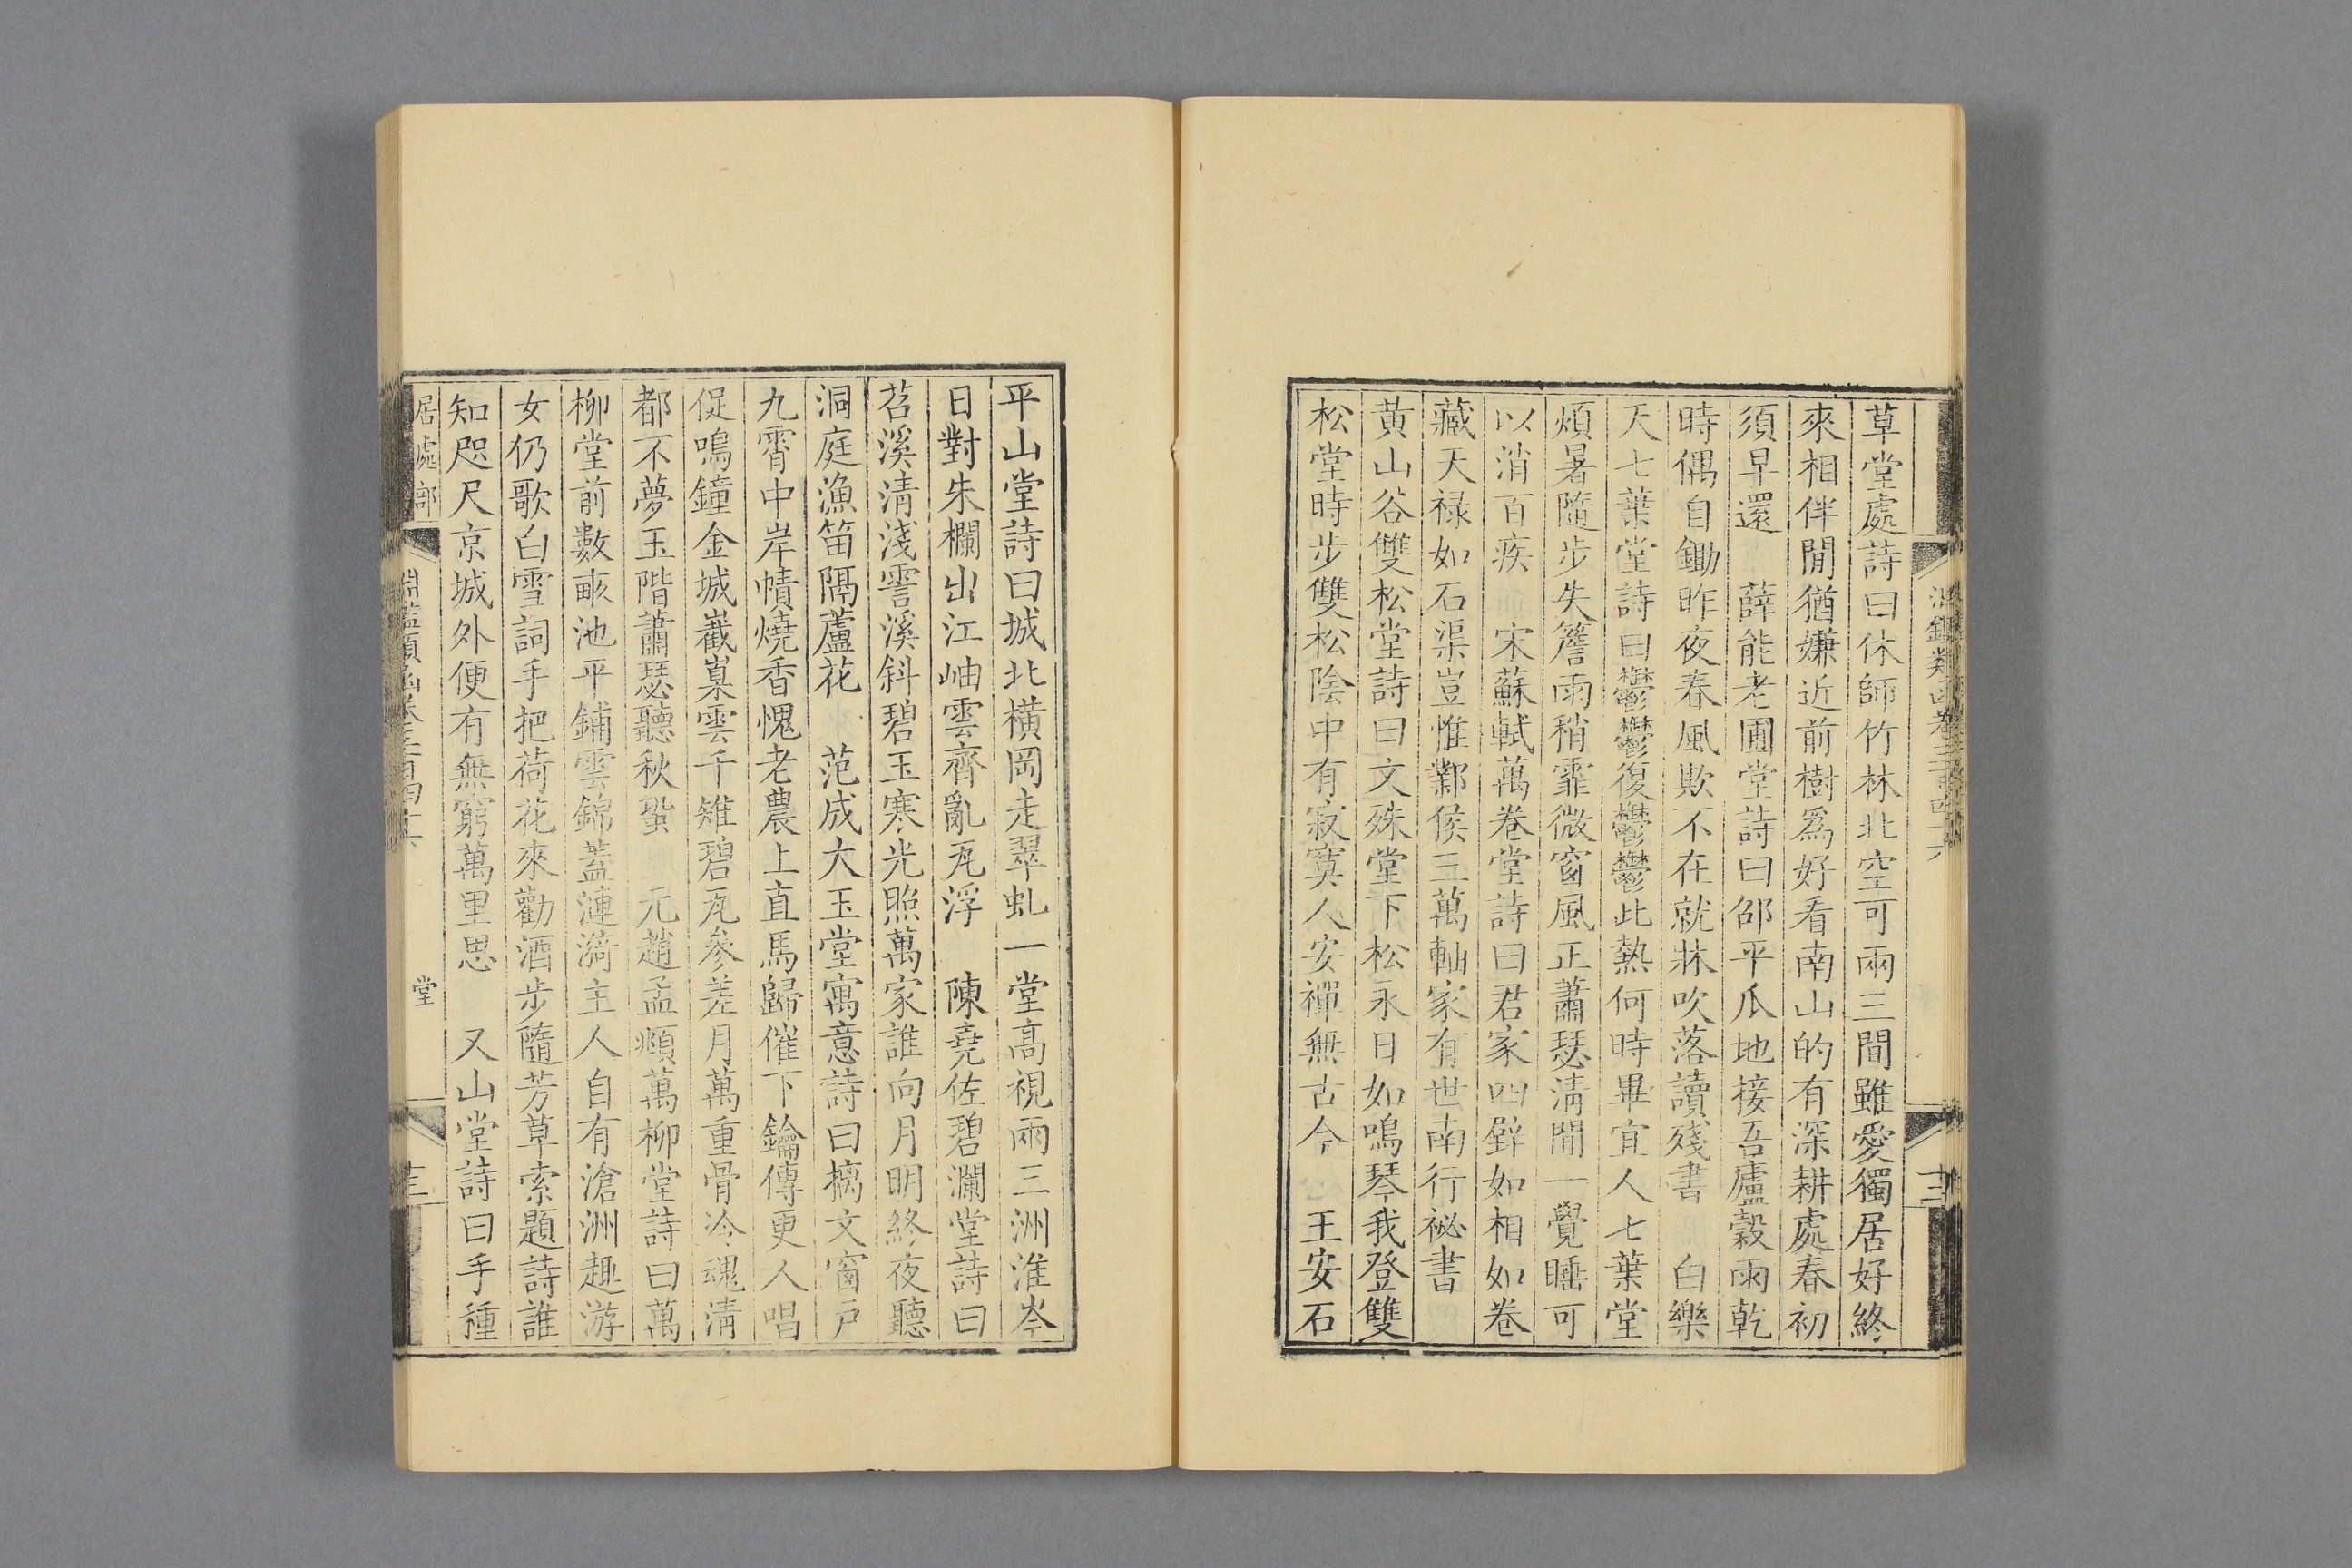 草堂處詩曰休師竹林北空可兩三間雖愛獨居好終
來相伴閒猶嫌近前樹爲好看南山的有深耕處春初
須早還　薛能老圃堂詩曰邵平瓜地接吾廬穀雨乾
時偶自鋤昨夜春風欺不在就牀吹落讀殘書　白樂
天七葉堂詩曰鬱鬱復鬱鬱此熱何時畢宜人七葉堂
煩暑隨步失簷雨稍霏微窗風正蕭瑟淸閒一覺睡可
以消百疾　宋蘇軾萬卷堂詩曰君家四壁如相如卷
藏天祿如石渠豈惟鄴侯三萬軸家有世南行祕書
黃山谷雙松堂詩曰文殊堂下松永日如鳴琴我登雙
松堂時步雙松陰中有寂寞人安禪無古今　王安石
平山堂詩曰城北橫岡走翠虬一堂高視兩三洲淮岑
日對朱欄出江岫雲齊亂瓦浮　陳堯佐碧瀾堂詩曰
苕溪淸淺霅溪斜碧玉寒光照萬家誰向月明終夜聽
洞庭漁笛隔蘆花　范成大玉堂寓意詩曰摛文窗戶
九霄中岸幘燒香愧老農上直馬歸催下鑰傳更人唱
促鳴鐘金城巀嶪雲千雉碧瓦參差月萬重骨冷魂淸
都不夢玉階蕭瑟聽秋蛩　元趙孟頫萬柳堂詩曰萬
柳堂前數畝池平鋪雲錦蓋漣漪主人自有滄洲趣游
女仍歌白雪詞手把荷花來勸酒步隨芳草索題詩誰
知咫尺京城外便有無窮萬里思　又山堂詩曰手種
居處部　淵鑑類函卷三百四十六　堂